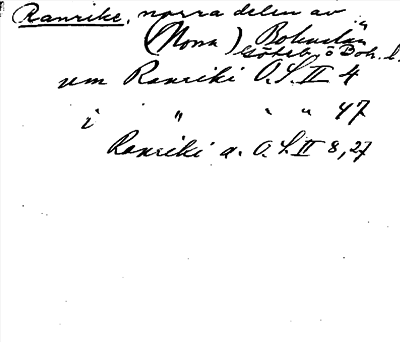 Ranrike, norra delen av
(Norra) Bohuslän
Göteb. o Boh. l.
um Ranriki O.S.II 4
i " " " 47
Ranriki a. O.S.II 8,27